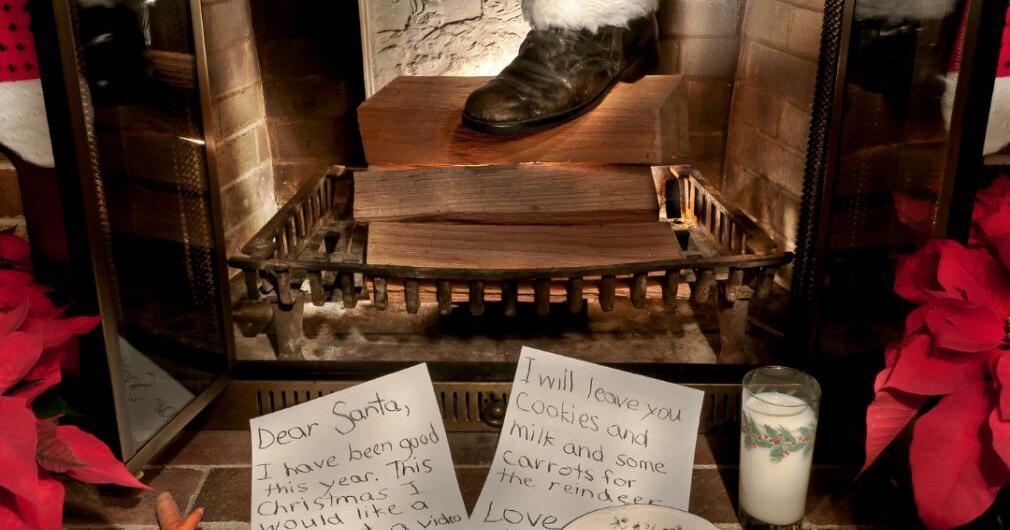 Dear Santa,
I have been good
this year. This
Christmas I
would like a
a video
I will leave you
Cookies and
milk and some
carrots for
the reindeer
Love